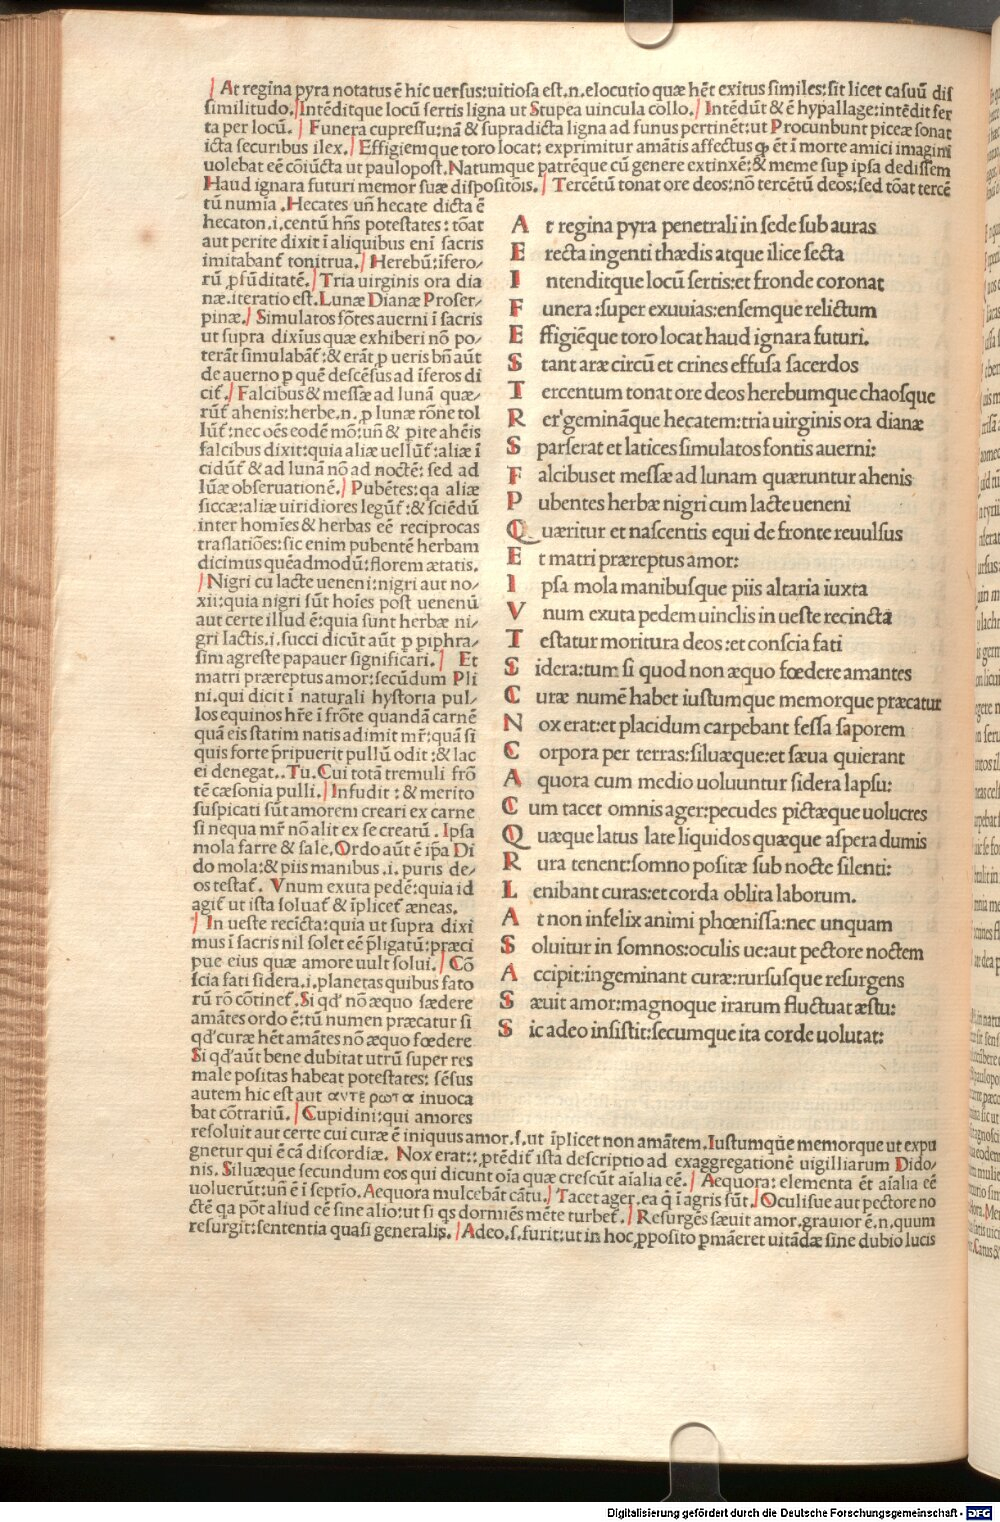 At regina pyra notatus ē hic uersus:uitiosa est.n.elocutio quæ hēt exitus similes:sit licet casuū dis
similitudo. Intēditque locū sertis ligna ut Stupea uincula collo. Intēdūt & ē hypallage:intēdit ser
ta per locū. Funera cupressu:nā & supradicta ligna ad funus pertinēt:ut Procumbunt piceæ sonat
icta securibus ilex. Effigiemque toro locat: exprimitur amātis affectus ꝙ ēt ī morte amici imagini
uolebat eē cōiūcta ut paulopost. Natumque patrēque cū genere extinxē:& meme sup ipsa dedissem
Haud ignara futuri memor suæ dispositōis. Tercētū tonat ore deos:nō tercētū deos:sed tōat tercē
tū numia. Hecates uñ hecate dicta ē
hecaton.i.centū hñs potestates: tōat
aut perite dixit ī aliquibus enī sacris
imitabant̄ tonitrua. Herebū:īfero/
rū ꝓfūditatē. Tria uirginis ora dia
næ.iteratio est. Lunæ Dianæ Proser/
pinæ. Simulatos fōtes auerni ī sacris
ut supra dixius quæ exhiberi nō po/
terāt simulabāt̄:& erāt ꝓ ueris bñ aūt
de auerno ꝑ quē descēsus ad īferos di
cit̄. Falcibus & messæ ad lunā quæ/
rūt̄ ahenis:herbe.n. ꝓ lunæ rōne tol
lūt̄:nec oēs eodē mō:uñ & pite ahēis
falcibus dixit:quia aliæ uellūt̄:aliæ ī
cidūt̄ & ad lunā nō ad noctē: sed ad
lūæ obseruationē. Pubētes:qa aliæ
siccæ:aliæ uiridiores legūt̄:& sciēdū
inter homīes & herbas eē reciprocas
traslatiōes:sic enim pubentē herbam
dicimus quēadmodū:florem ætatis.
Nigri cū lacte ueneni:nigri aut no/
xii:quia nigri sūt hoīes post uenenū
aut certe illud ē:quia sunt herbæ ni/
gri lactis.i.succi dicūt aūt ꝑ piphra/
sim agreste papauer significari. Et
matri præreptus amor:secūdum Pli
ni.qui dicit ī naturali hystoria pul/
los equinos hr̄e ī frōte quandā carnē
quā eis statim natis adimit mr̄:quā si
quis forte p̄ripuerit pullū odit :& lac
ei denegat.. Tu. Cui totā tremuli frō
tē cæsonia pulli. Infudit : & merito
suspicati sūt amorem creari ex carne
si nequa mr̄ nō alit ex se creatū . Ipsa
mola farre & sale. Ordo aūt ē ip̄a Di
do mola:& piis manibus .i. puris de/
os testat̄. Vnum exuta pedē:quia id
agit̄ ut ista soluat̄ & īplicet̄ æneas.
In ueste recīcta:quia ut supra dixi
mus ī sacris nil solet eē p̄ligatū:præci
pue eius quæ amore uult solui. Cō
scia fati sidera.i.planetas quibus fato
rū rō cōtinet̄. Si qd' nō æquo fædere
amātes ordo ē:tū numen præcatur si
qd'curæ hēt amātes nō æquo fœdere
Si qd'aūt bene dubitat utrū super res
male positas habeat potestates: sēsus
autem hic est aut αντε ρωτα inuoca
bat cōtrariū. Cupidini:qui amores
resoluit aut certe cui curæ ē iniquus amor.s.ut īplicet non amātem. Iustumque memorque ut expu
gnetur qui ē cā discordiæ. Nox erat:.ꝓtēdit̄ ista descriptio ad exaggregationē uigilliarum Dido/
nis. Siluæque secundum eos qui dicunt oīa quæ crescūt aīalia eē. Aequora: elementa ēt aīalia eē
uoluerūt:uñ ē ī septio. Aequora mulcebāt cātu. Tacet ager.ea q̄ ī agris sūt. Oculisue aut pectore no
ctē qa pōt aliud eē sine alio:ut si qs dormiēs mēte turbet̄. Resurgēs sæuit amor.grauior ē.n.quum
resurgit:sententia quasi generalis. Adeo.s.furit:ut in hoc ꝓposito ꝑmāeret uitādæ sine dubio lucis
A t regina pyra penetrali in sede sub auras
E recta ingenti thædis atque ilice secta
I ntenditque locū sertis:et fronde coronat
F unera :super exuuias:ensemque relictum
E ffigiēque toro locat haud ignara futuri.
S tant aræ circū et crines effusa sacerdos
T ercentum tonat ore deos herebumque chaosque
T er'gemināque hecatem:tria uirginis ora dianæ
S parserat et latices simulatos fontis auerni:
F alcibus et messæ ad lunam quæruntur ahenis
P ubentes herbæ nigri cum lacte ueneni
Q uæritur et nascentis equi de fronte reuulsus
E t matri præreptus amor:
I psa mola manibusque piis altaria iuxta
V num exuta pedem uinclis in ueste recincta
T estatur moritura deos:et conscia fati
S idera:tum si quod non æquo fœdere amantes
C uræ numē habet iustumque memorque præcatur
N ox erat:et placidum carpebant fessa saporem
C orpora per terras:siluæque:et sæua quierant
A quora cum medio uoluuntur sidera lapsu:
C um tacet omnis ager:pecudes pictæque uolucres
Q uæque latus late liquidos quæque aspera dumis
R ura tenent:somno positæ sub nocte silenti:
L enibant curas:et corda oblita laborum.
A t non infelix animi phœnissa:nec unquam
S oluitur in somnos:oculis ue:aut pectore noctem
A ccipit:ingeminant curæ:rursusque resurgens
S æuit amor:magnoque irarum fluctuat æstu:
S ic adeo insistit:secumque ita corde uolutat:
Digitalisierung gefördert durch die Deutsche Forschungsgemeinschaft - DFG